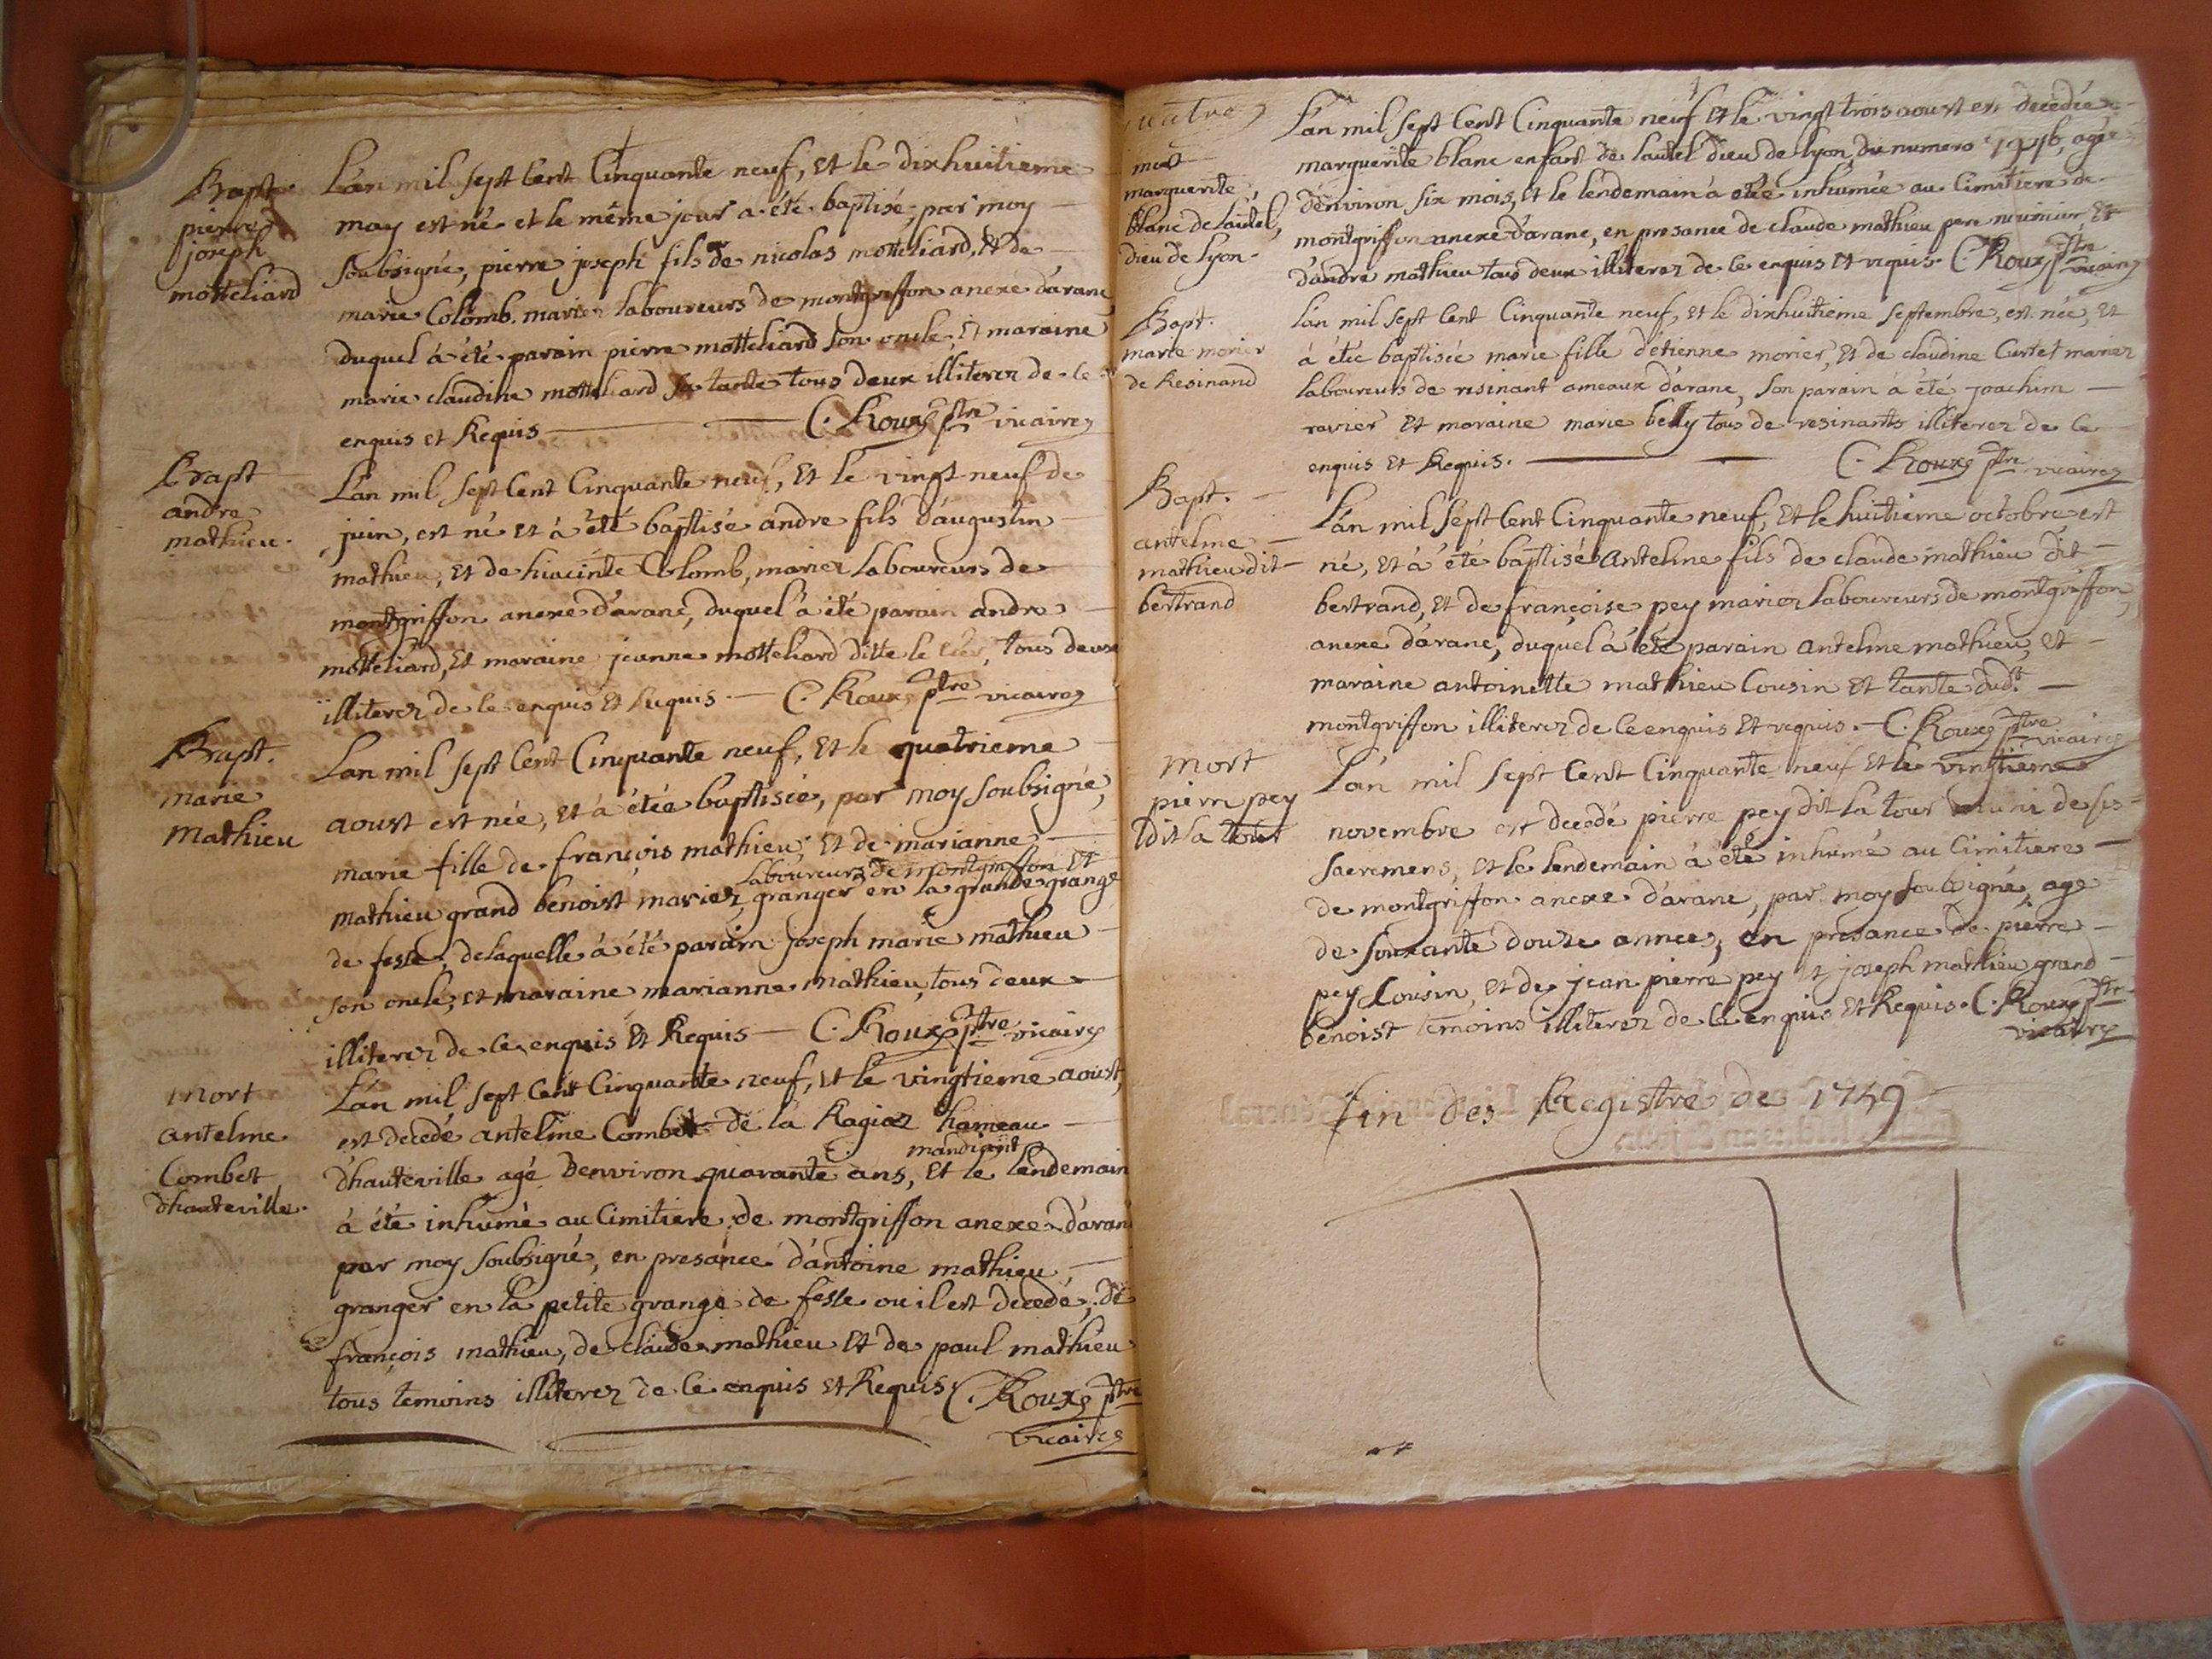 Bapt.
pierre
joseph
motteliard
L'an mil sept cent Cinquante neuf, et le dixhuitieme
may est né et le même jour a été baptisé, par moy
soubsigné, pierre joseph fils de nicolas motteliard, et de
marie Colomb mariez laboureurs de montgriffon anexe d'aranc
duquel à été parain pierre motteliard son oncle, et maraine
marie claudine motteliard sa tante tous deux illiterez de ce
enquis et Requis C. Roux ptre vicaire
Bapt
andre
mathieu.
L'an mil sept Cent Cinquante neuf, et le vingt neuf de
juin, est né et à été baptisé andre fils d'augustin
mathieu, et de hiacinte Colomb, mariez laboureurs de
montgriffon anexe d'aranc, duquel à été parain andre
motteliard, et maraine jeanne motteliard ditte le tous deux
illiterez de ce enquis et Requis. C. Roux ptre vicaire
Bapt.
marie
Mathieu
L'an mil sept Cent Cinquante neuf, et le quatrieme
aoust est née, et à étée baptisée, par moy soubsigné,
marie fille de françois mathieu, et de marianne
laboureurs de montgriffon et
mathieu grand benoist mariez, granger en la grande grange
de fesse, de laquelle à été parain joseph marie mathieu
son oncle, et maraine marianne mathieu, tous deux
illiterez de ce enquis et Requis C. Roux ptre vicaire
Mort
antelme
Combet
d'hauteville.
L'an mil sept Cent Cinquante neuf, et le vingtieme aoust,
est decedé antelme Combet de la Ragiaz hameau
mandiant
d'hauteville agé d'environ quarante ans, et le lendemain
à été inhumé au Cimitiere de montgriffon anexe d'aranc
par moy soubsigné, en presance d'antoine mathieu
granger en la petite grange de fesse ou il est decedé, de
françois mathieu, de claude mathieu et de paul mathieu
tous temoins illiterez de ce enquis et Requis C. Roux ptre
vicaire
quatre
mort
marguerite
blanc de l'autel
dieu de lyon.
L'an mil sept Cent Cinquante neuf et le vingt trois aoust est decedée
marguerite blanc enfant de lautel dieu de lyon, du numero agé
d'environ six mois, et le lendemain à étée inhumée au Cimitiere de
montgriffon anexe d'aranc, en presance de claude mathieu pere nouricier et
d'andré mathieu tous deux illiterez de ce enquis et requis. C. Roux ptre
vicaire
Bapt.
marie morier
de Resinand
L'an mil sept Cent Cinquante neuf, et le dixhuitieme septembre, est née, et
à étée baptisée marie fille d'etienne morier, et de claudine Curtet mariez
laboureurs de resinant ameaux d'aranc, son parain à été joachim
ravier et maraine marie belly tous de resinants illiterez de ce
enquis et Requis. C. Roux ptre vicaire
Bapt.
antelme
mathieu dit
bertrand
L'an mil sept Cent Cinquante neuf, et le huitieme octobre est
né, et à été baptisé antelme fils de claude mathieu dit
bertrand, et de françoise pey mariez laboureurs de montgriffon,
anexe d'aranc, duquel à été parain antelme mathieu, et
maraine antoinette mathieu Cousin et tante dudt
montgriffon illiterez de ce enquis et requis. C. Roux ptre
vicaire
Mort
pierre pey
dit la tour
L'an mil sept Cent Cinquante neuf et le vingtieme
novembre est decedé pierre pey dit la tour muni de ses
sacremens, et le lendemain à été inhumé au Cimitiere
de montgriffon anexe d'aranc, par moy soubsigné, agé
de soixante douze années, en presance de pierre
pey Cousin, et de jean pierre pey et joseph mathieu grand
benoist temoins illiterez de ce enquis et Requis. C. Roux ptre
vicaire
fin des Registre de 1759